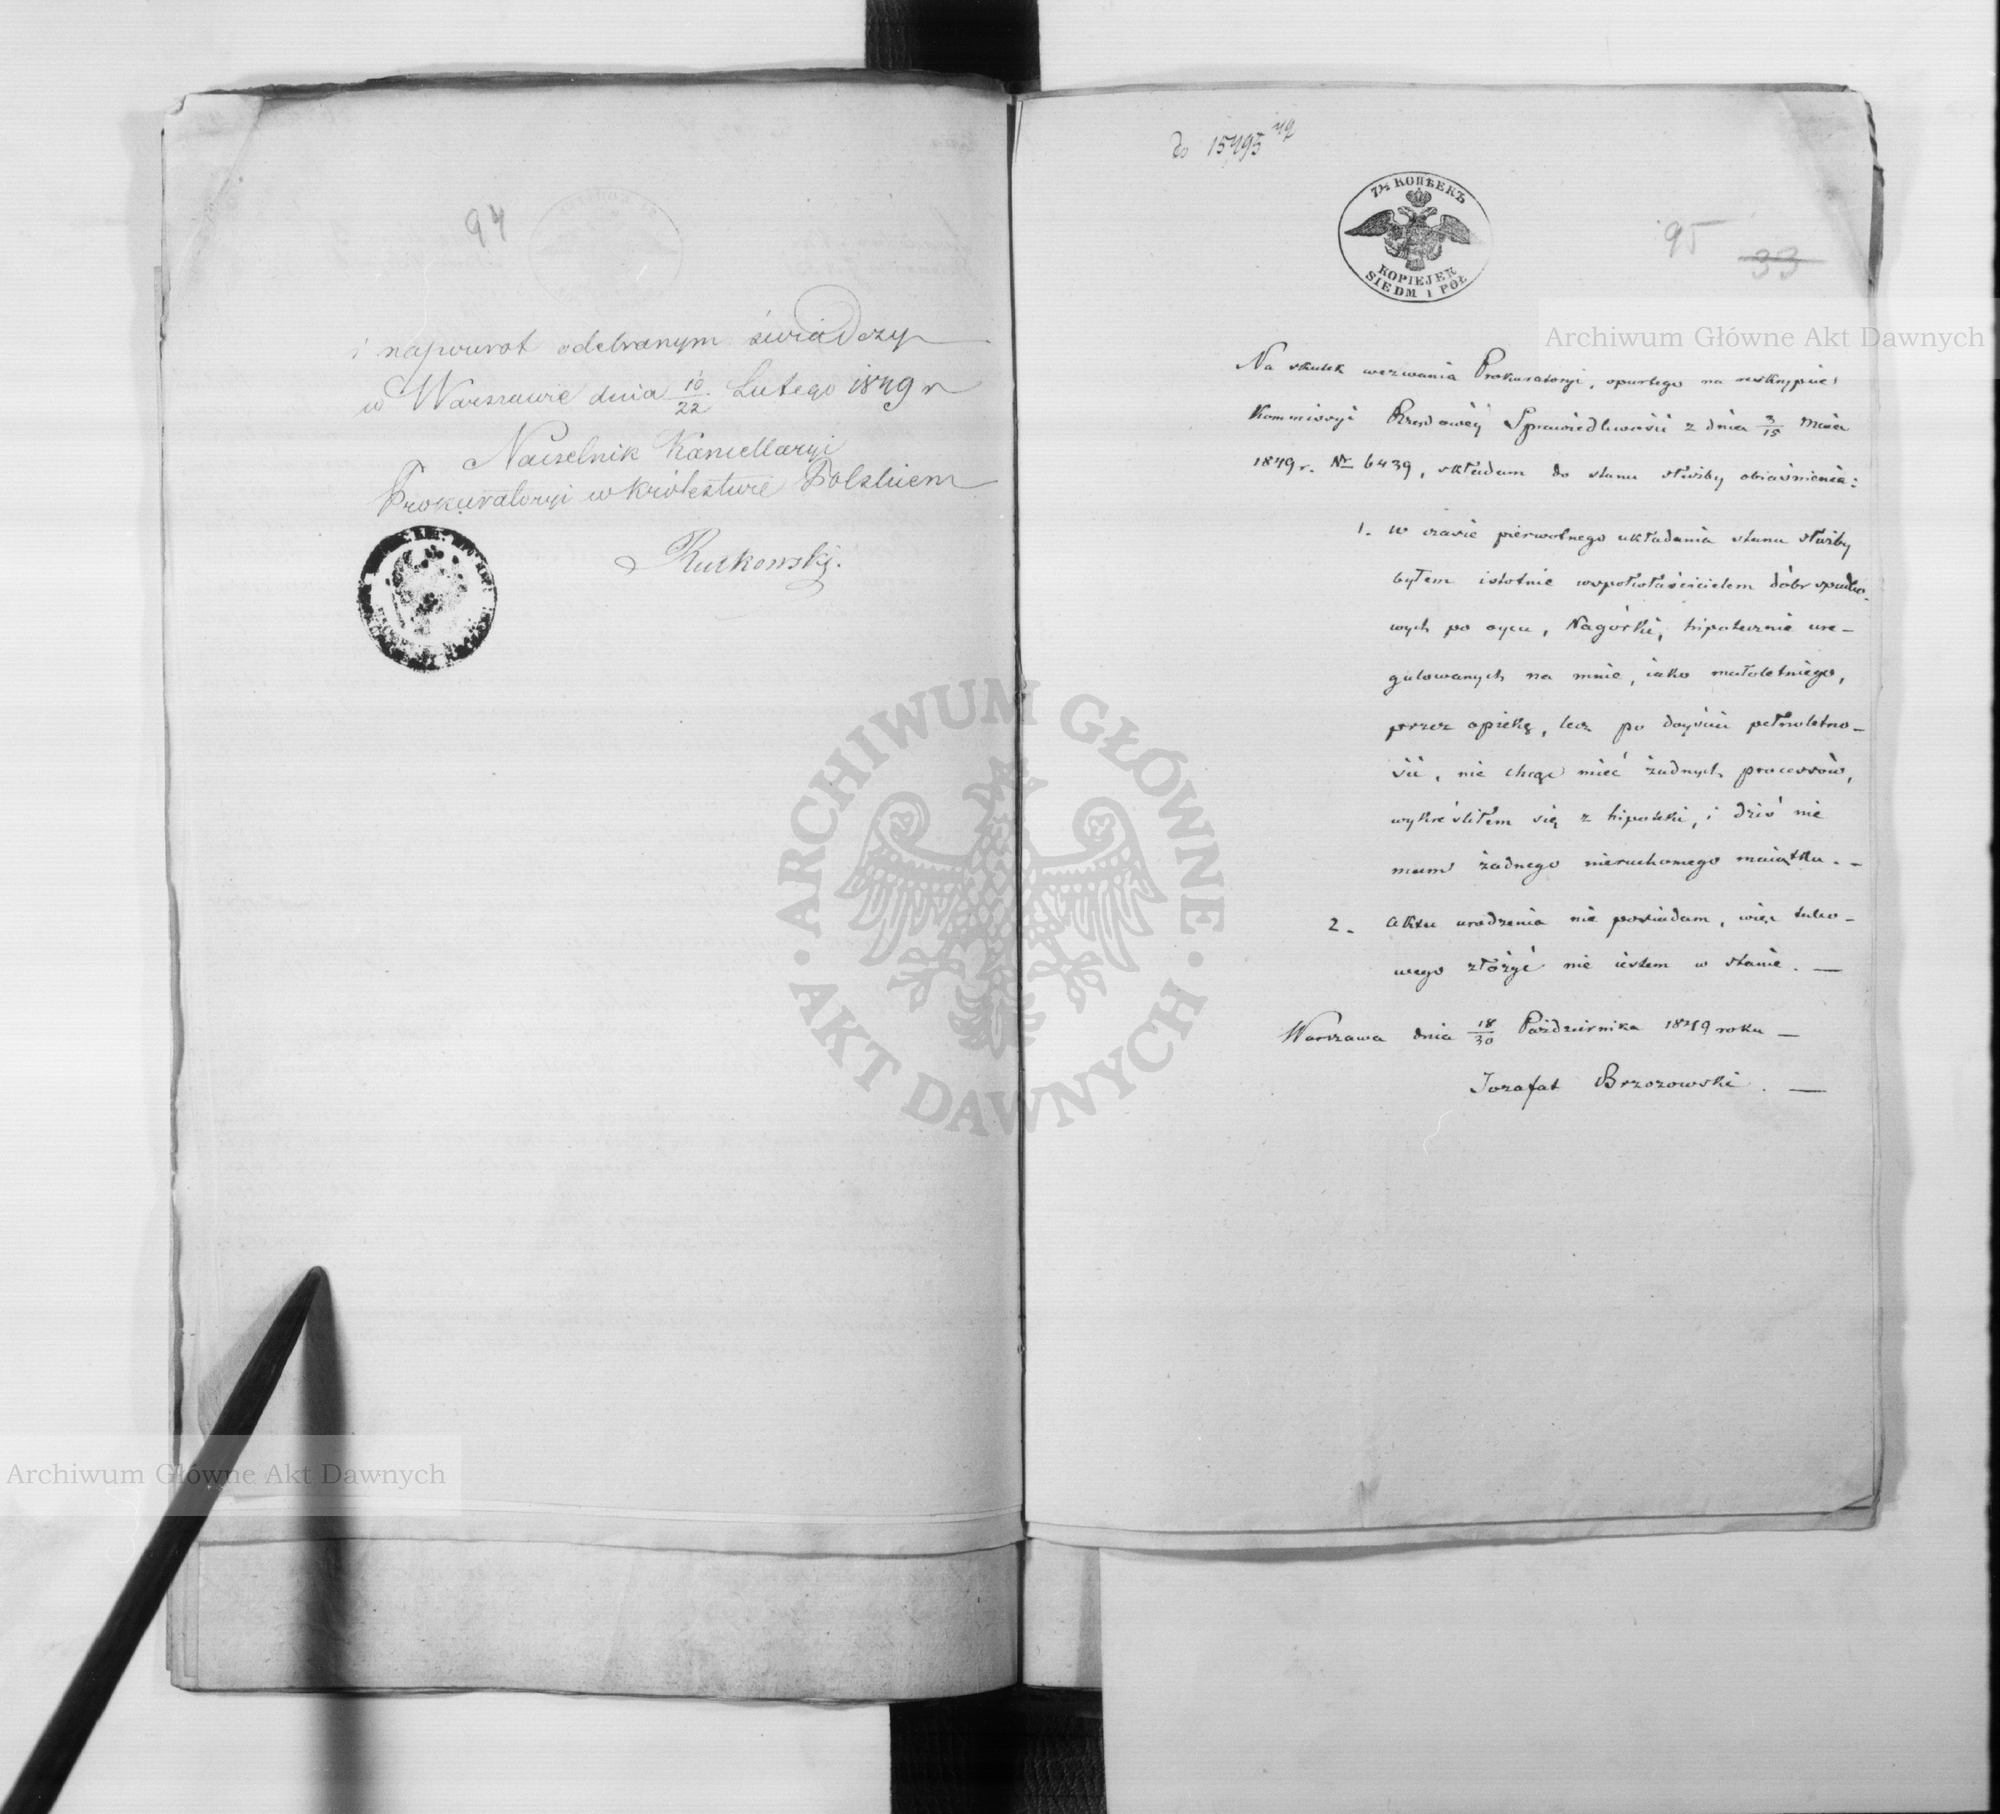 94
i napowrot odebranym świadczy
w Warszawie dnia 10/22 Lutego 1849 r
Naczelnik Kancellaryi
Prokuratoryi w Królestwie Polskiem
Rutkowski.
do 15495/49
7½ КОПѢЕКЪ
KOPIEJEK
SIEDM I PÓŁ
95
33
Na skutek wezwania Prokuratoryi, opartego na reskrypcie
Kommissyi Rządowéj Sprawiedliwości z dnia 3/15 Maia
1849 r. Nr 6439, składam do stanu służby obiaśnienia:
1. W czasie pierwotnego układania stanu służby
byłem istotnie współwłaścicielem dóbr spadko-
wych po oycu, Nagórki, hipotecznie ure-
gulowanych na mnie, iako małoletniego,
przez opiekę, lecz po doyściu pełnoletno-
ści, nie chcąc mieć żadnych processów,
wykreśliłem się z hipoteki, i dziś nie
mam żadnego nieruchomego maiątku. -
2. Aktu urodzenia nie posiadam, więc tako-
wego złożyć nie iestem w stanie. —
Warszawa dnia 18/30 Października 1849 roku —
Jozafat Brzozowski. —
Archiwum Główne Akt Dawnych
ARCHIWUM GŁÓWNE
AKT DAWNYCH
Archiwum Główne Akt Dawnych